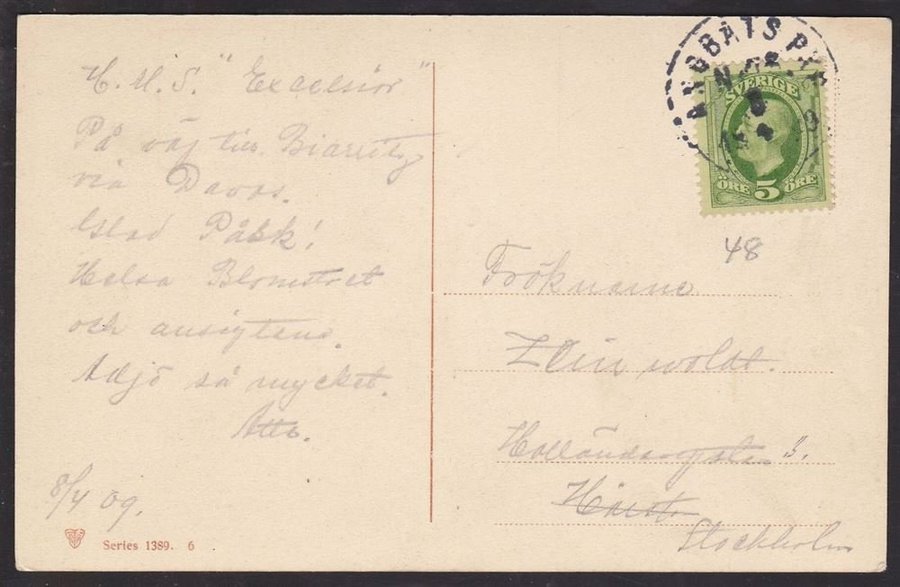 H.M.S. "Excelsior"
På väg till Biarritz
via Davos.
Glad Påsk!
Helsa Blomstret
och ansigtena.
Adjö så mycket.
Atto.
8/4 09.
Series 1389. 6
ÅNGBÅTS PXP
SVERIGE
ÖRE 5 ÖRE
48
Fröknarna
Stockholm